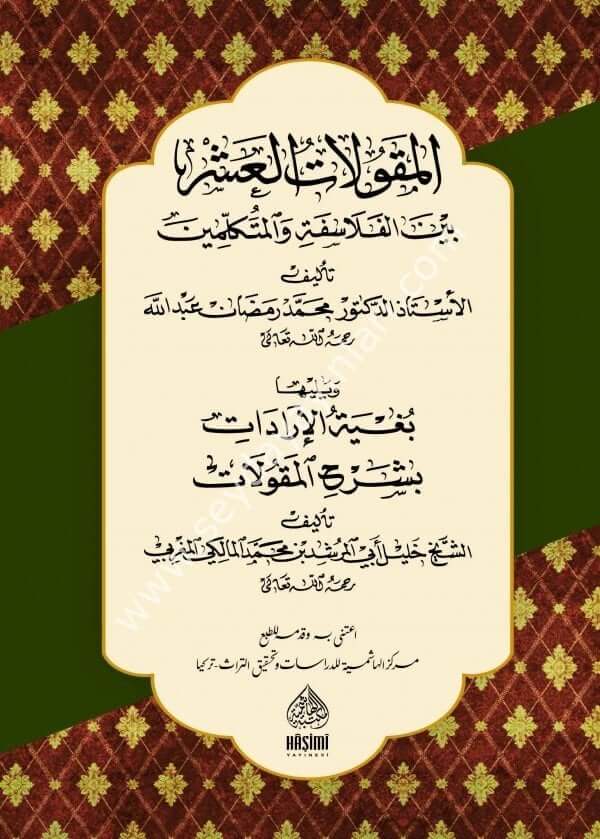 المقولات العشر
بين الفلاسفة والمتكلمين
تأليف
الأستاذ الدكتور محمد رمضان عبد الله
رحمه الله تعالى
ويليها
بغية الإرادات
بشرح المقولات
تأليف
الشيخ خليل أبي المرشد بن محمد المالكي المغربي
رحمه الله تعالى
اعتنى به وقدمه للطبع
مركز الهاشمية للدراسات وتحقيق التراث - تركيا
HÂŞİMÎ
YAYINEVİ